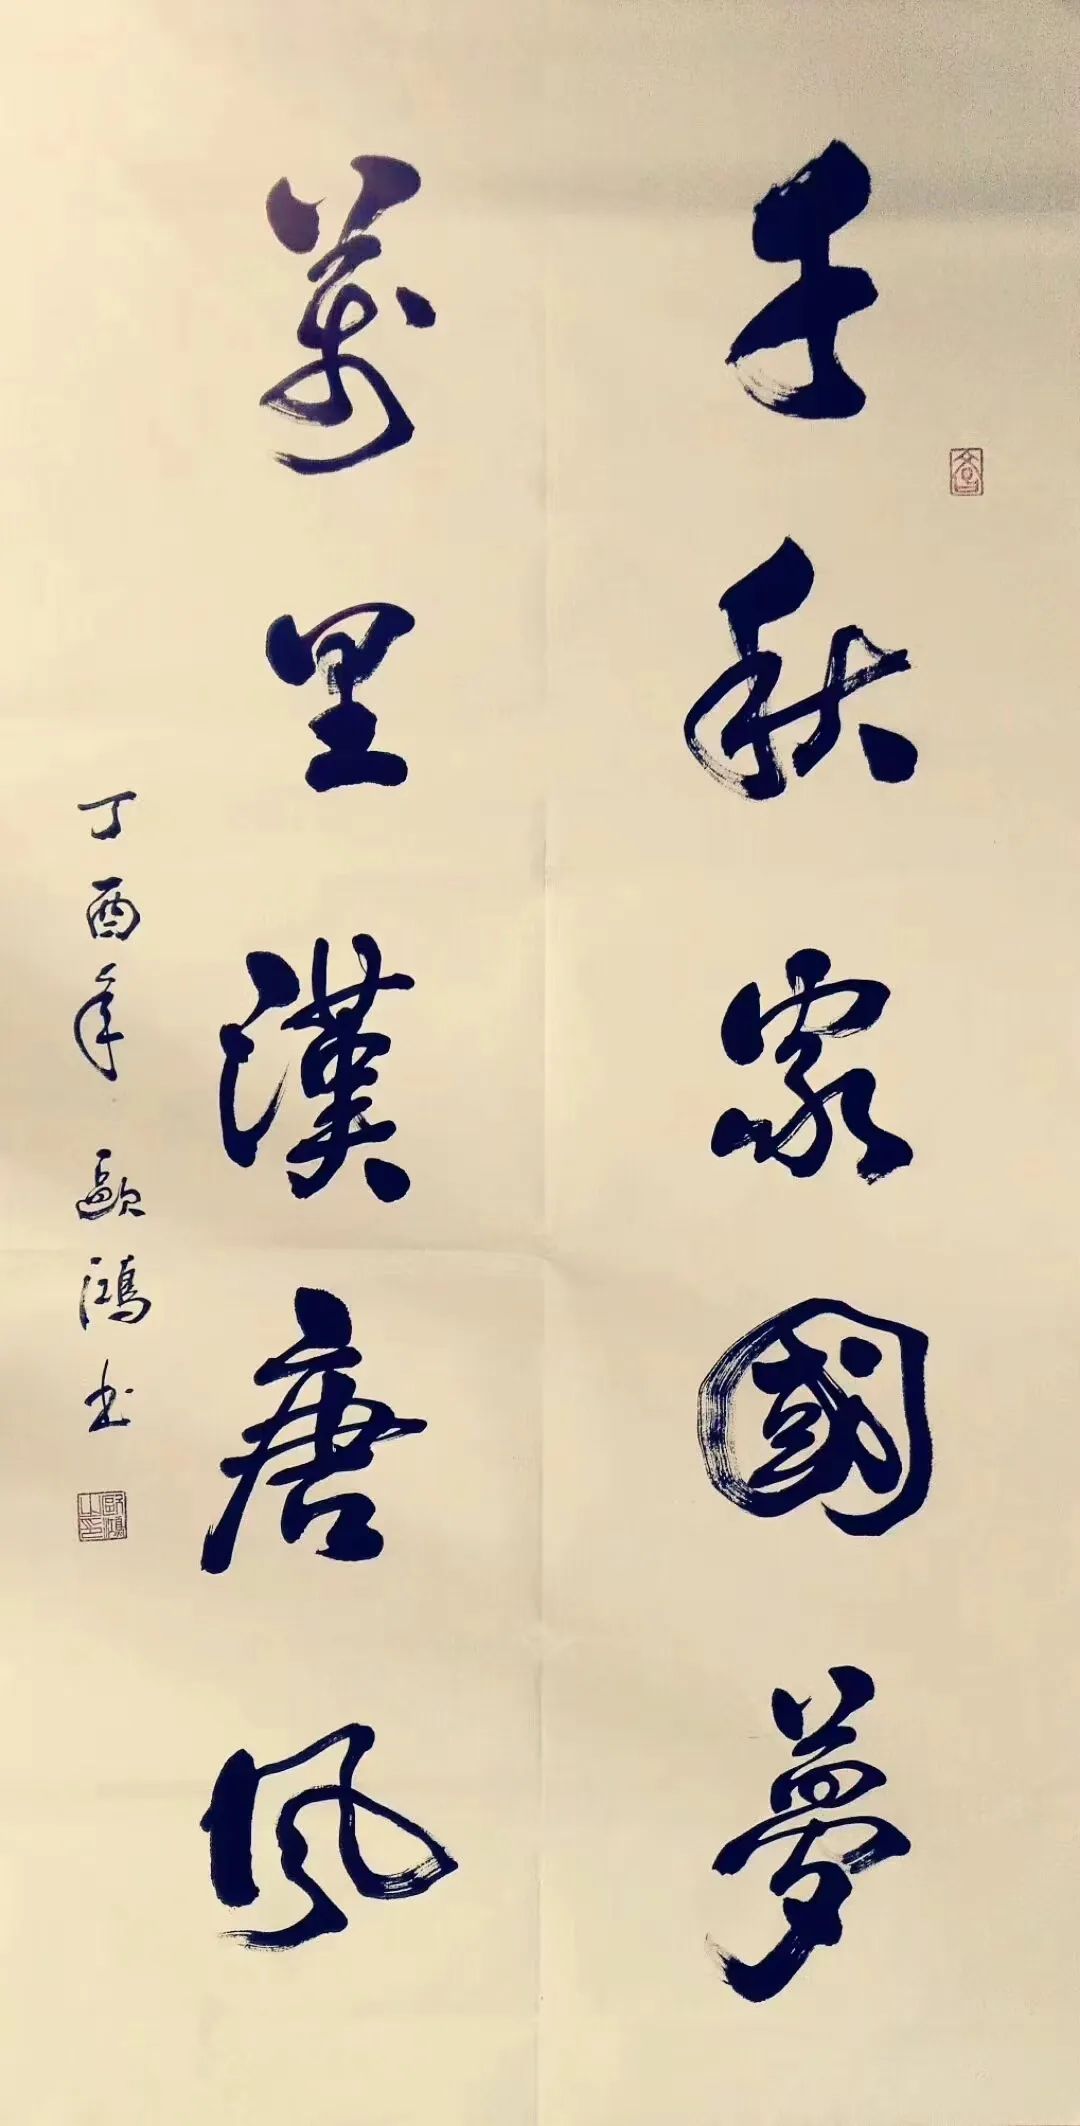 千秋家國夢
萬里漢唐風
丁酉年 歐鴻书
歐鴻之印